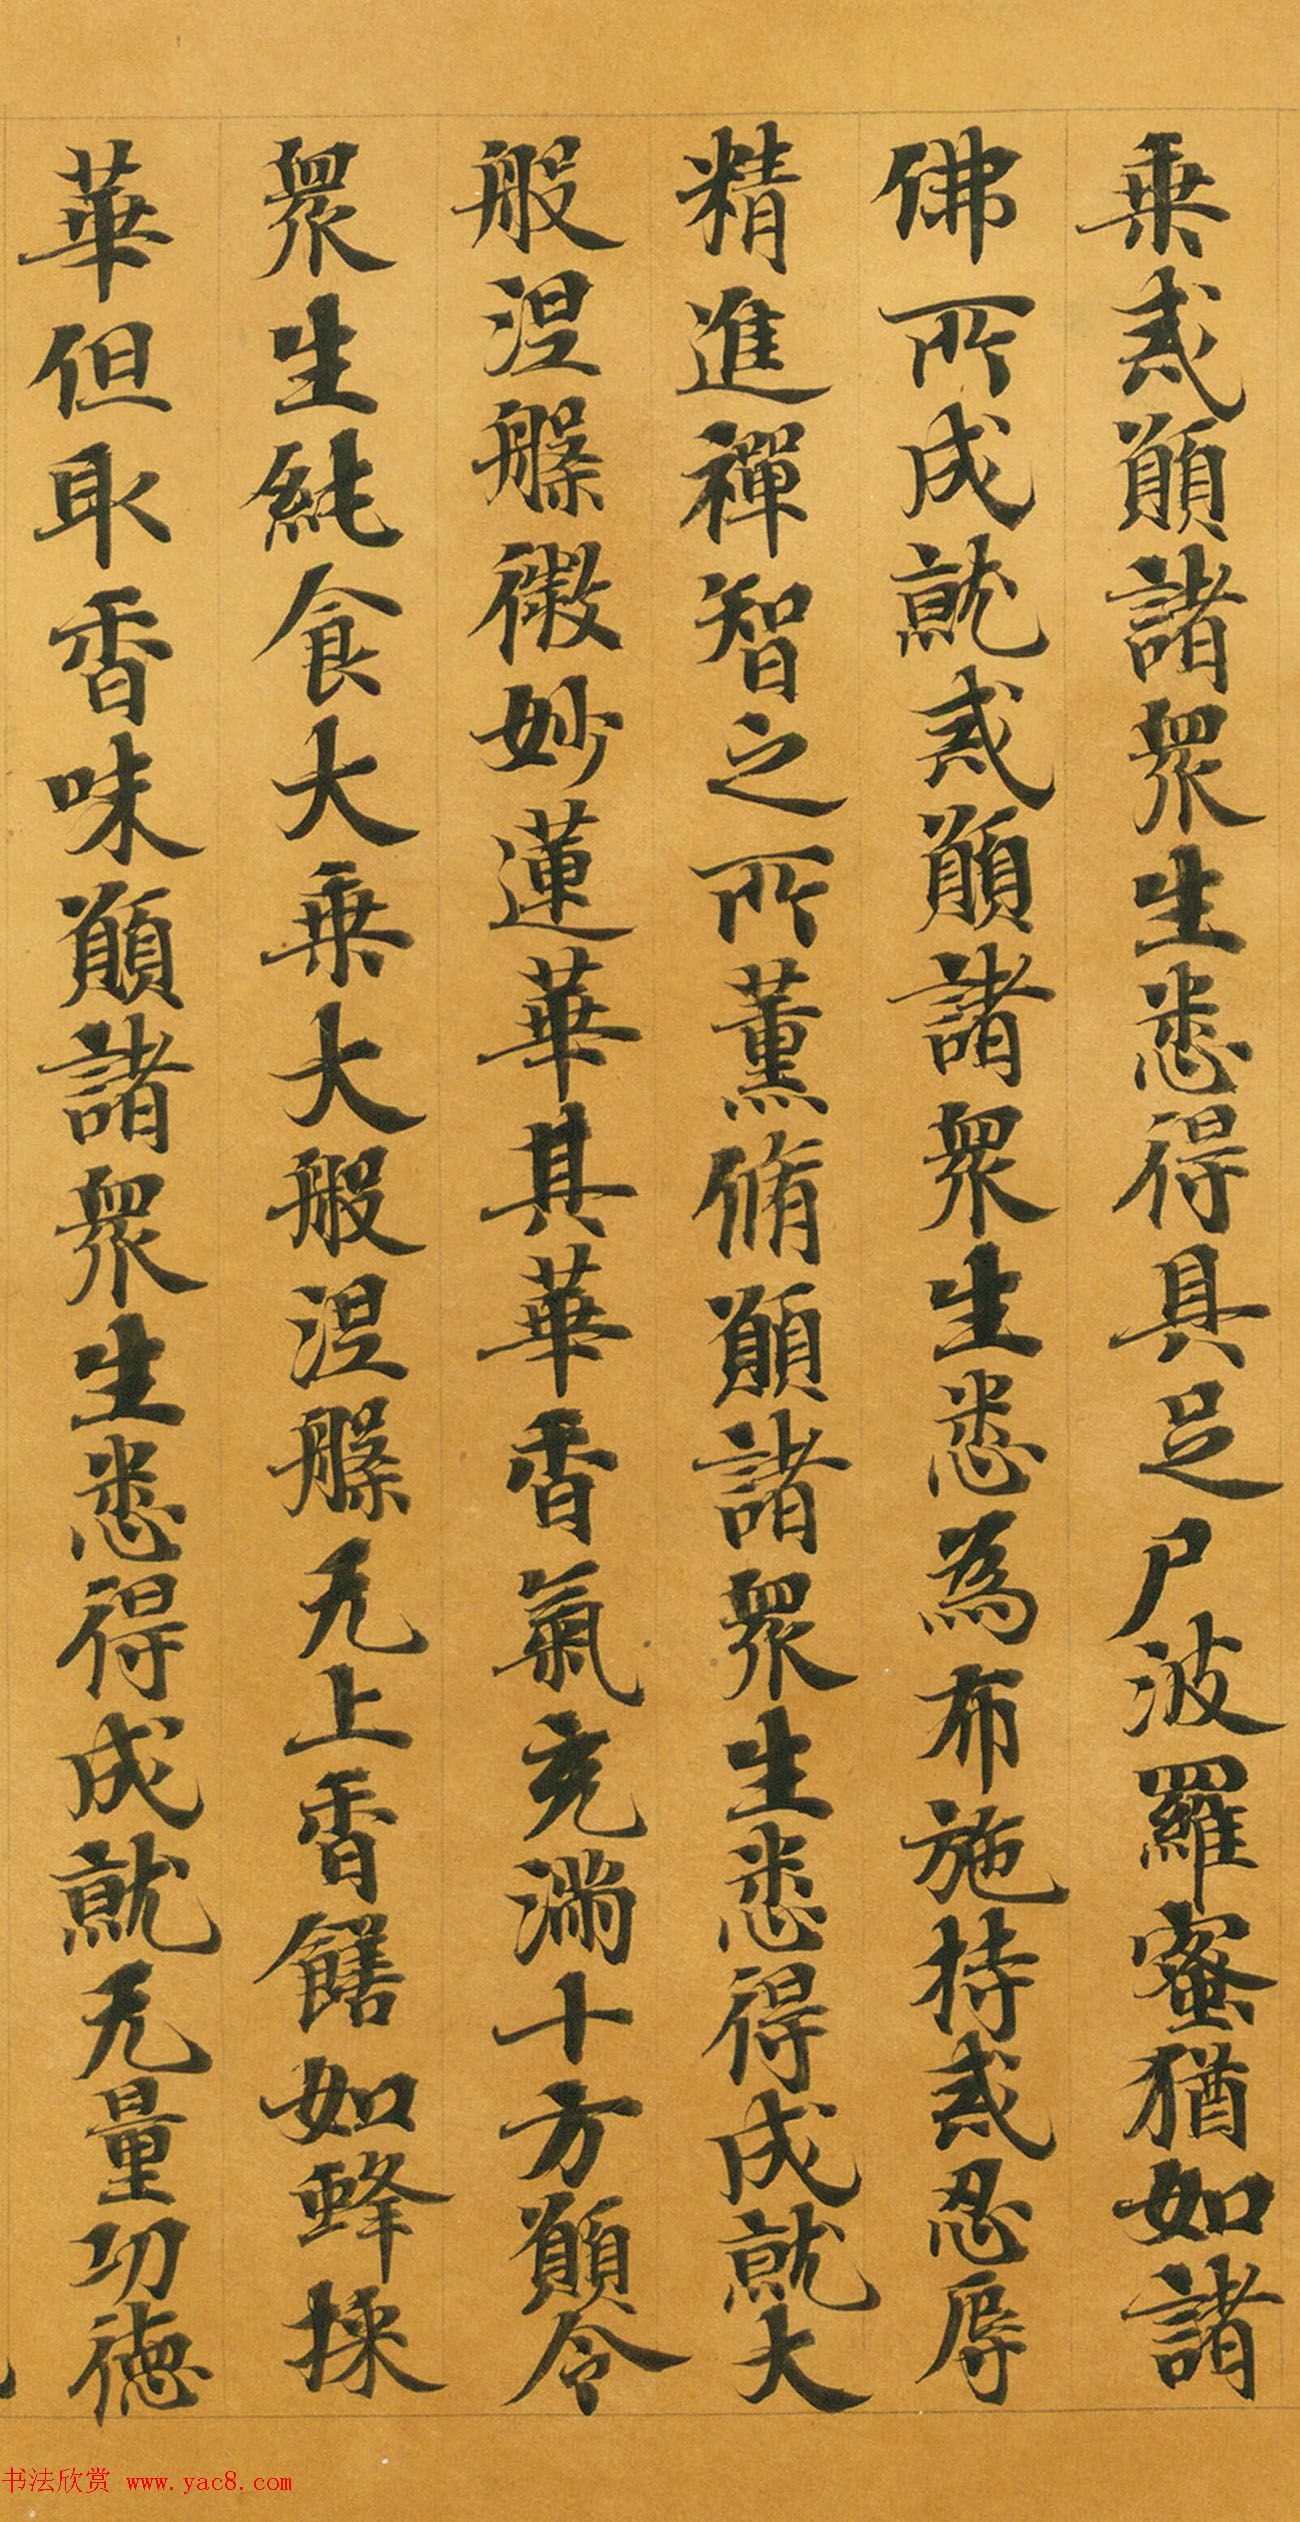 乗戒願諸衆生悉得具足尸波羅蜜猶如諸
佛所成就戒願諸衆生悉為布施持戒忍辱
精進禪智之所薰脩願諸衆生悉得成就大
般涅槃微妙蓮華其華香氣充滿十方願令
衆生純食大乗大般涅槃无上香饍如蜂採
華但取香味願諸衆生悉得成就无量功德
书法欣赏 www.yac8.com